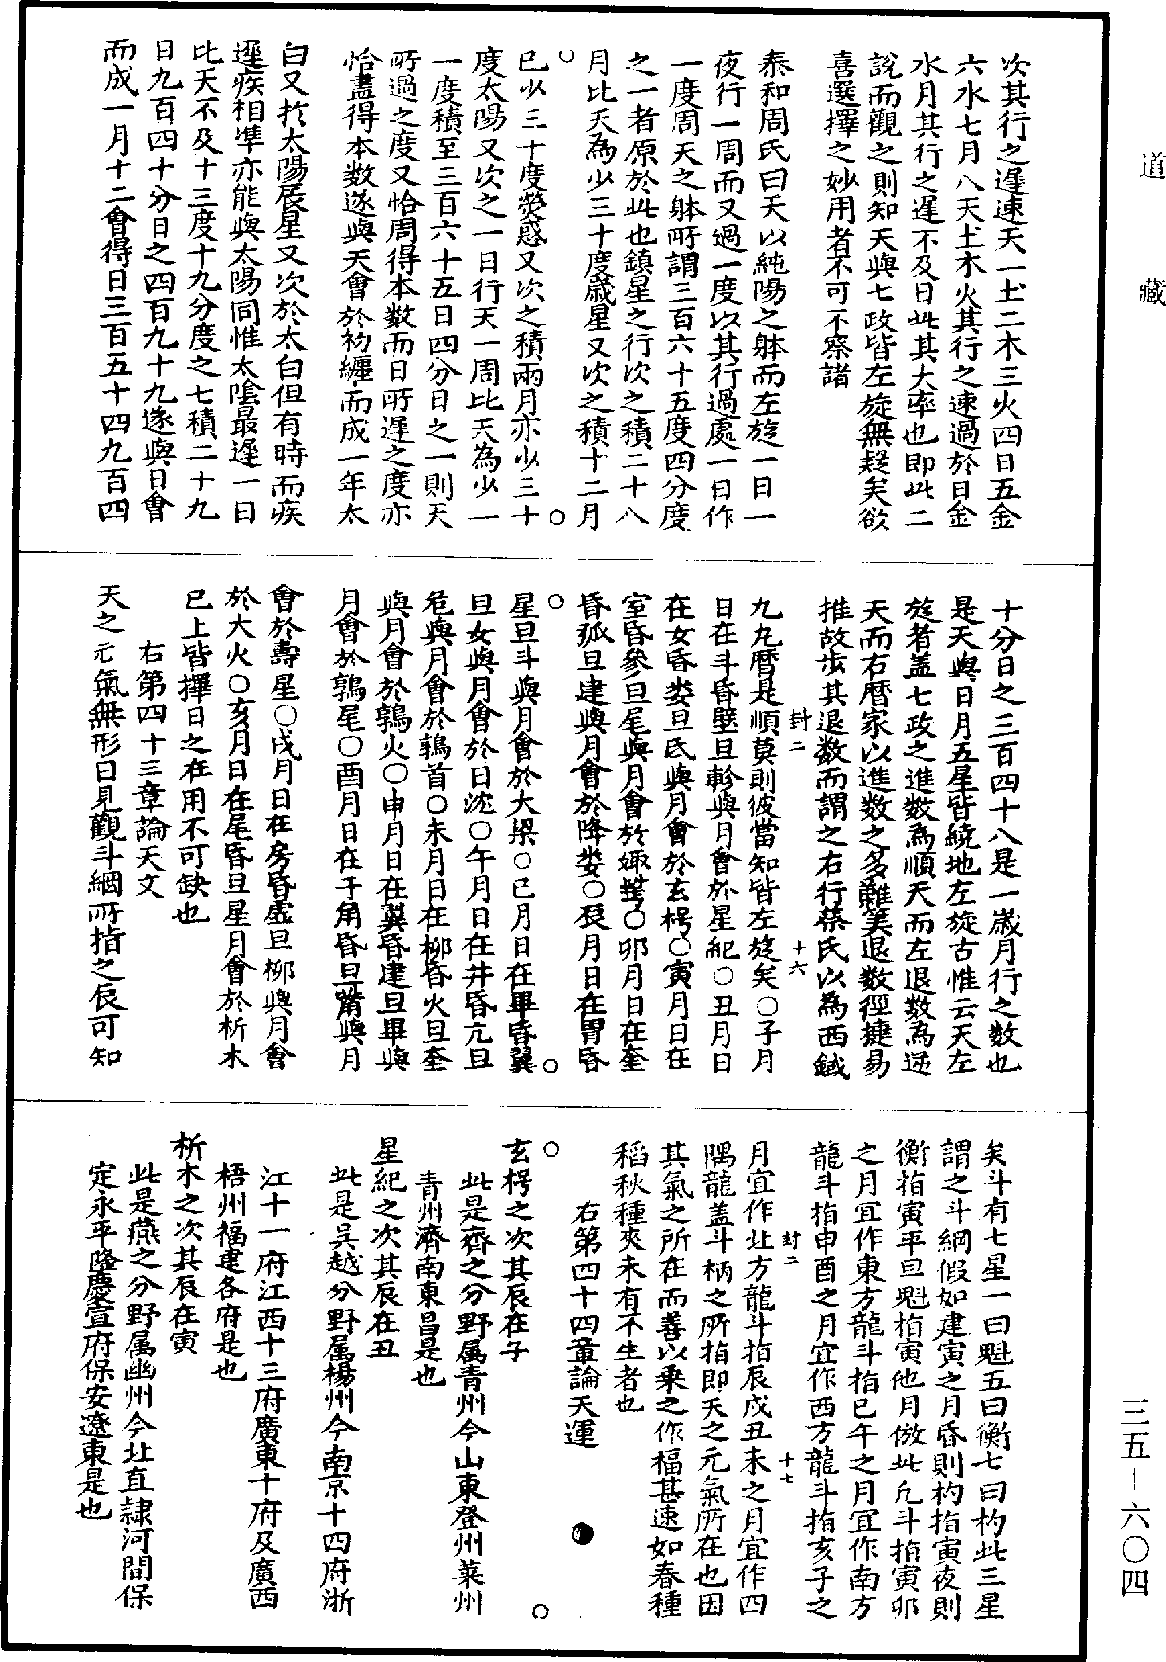 道藏
次其行之遲速天一土二木三火四日五金
六水七月八天土木火其行之速過於日金
水月其行之遲不及日此其大率也即此二
說而觀之則知天與七政皆左旋無疑矣欲
喜選擇之妙用者不可不察諸
泰和周氏曰天以純陽之躰而左旋一日一
夜行一周而又過一度以其行過處一日作
一度周天之躰所謂三百六十五度四分度
之一者原於此也鎮星之行次之積二十八
月比天為少三十度歲星又次之積十二月
已少三十度熒惑又次之積兩月亦少三十
度太陽又次之一日行天一周比天為少一
一度積至三百六十五日四分日之一則天
所過之度又恰周得本数而日所遲之度亦
恰盡得本数遂與天會於初纏而成一年太
白又於太陽辰星又次於太白但有時而疾
遲疾相準亦能與太陽同惟太陰最遲一日
比天不及十三度十九分度之七積二十九
日九百四十分日之四百九十九遂與日會
而成一月十二會得日三百五十四九百四
十分日之三百四十八是一歲月行之数也
是天與日月五星皆繞地左旋古惟云天左
旋者蓋七政之進数為順天而左退数為逆
天而右曆家以進数之多難筭退数徑捷易
推故步其退数而謂之右行蔡氏以為西鉞
封二 十六
九九曆是順莫則彼當知皆左旋矣○子月
日在斗昏壁旦軫與月會於星紀○丑月日
在女昏娄旦氐與月會於玄枵○寅月日在
室昏參旦尾與月會於娵訾○卯月日在奎
昏弧旦建與月會於降娄○辰月日在胃昏
星旦斗與月會於大梁○巳月日在畢昏翼
旦女與月會於日沈○午月日在井昏亢旦
危與月會於鶉首○未月日在柳昏火旦奎
與月會於鶉火○申月日在翼昏建旦畢與
月會於鶉尾○酉月日在于角昏旦觜與月
會於壽星○戌月日在房昏虛旦柳與月會
於大火○亥月日在尾昏旦星月會於析木
已上皆擇日之在用不可缺也
右第四十三章論天文
天之元氣無形曰見觀斗綱所指之辰可知
矣斗有七星一曰魁五曰衡七曰杓此三星
謂之斗綱假如建寅之月昏則杓指寅夜則
衡指寅平旦魁指寅他月倣此凢斗指寅卯
之月宜作東方龍斗指巳午之月宜作南方
龍斗指申酉之月宜作西方龍斗指亥子之
封二 十七
月宜作北方龍斗指辰戌丑未之月宜作四
隅龍蓋斗柄之所指即天之元氣所在也因
其氣之所在而善以乗之作福甚速如春種
稻秋種夾未有不生者也
右第四十四章論天運
玄枵之次其辰在子
此是齊之分野属青州今山東登州萊州
青州濟南東昌是也
星紀之次其辰在丑
此是吳越分野属楊州今南京十四府浙
江十一府江西十三府廣東十府及廣西
梧州福建各府是也
析木之次其辰在寅
此是燕之分野属幽州今北直隷河間保
定永平隆慶宣府保安遼東是也
三五-六〇四